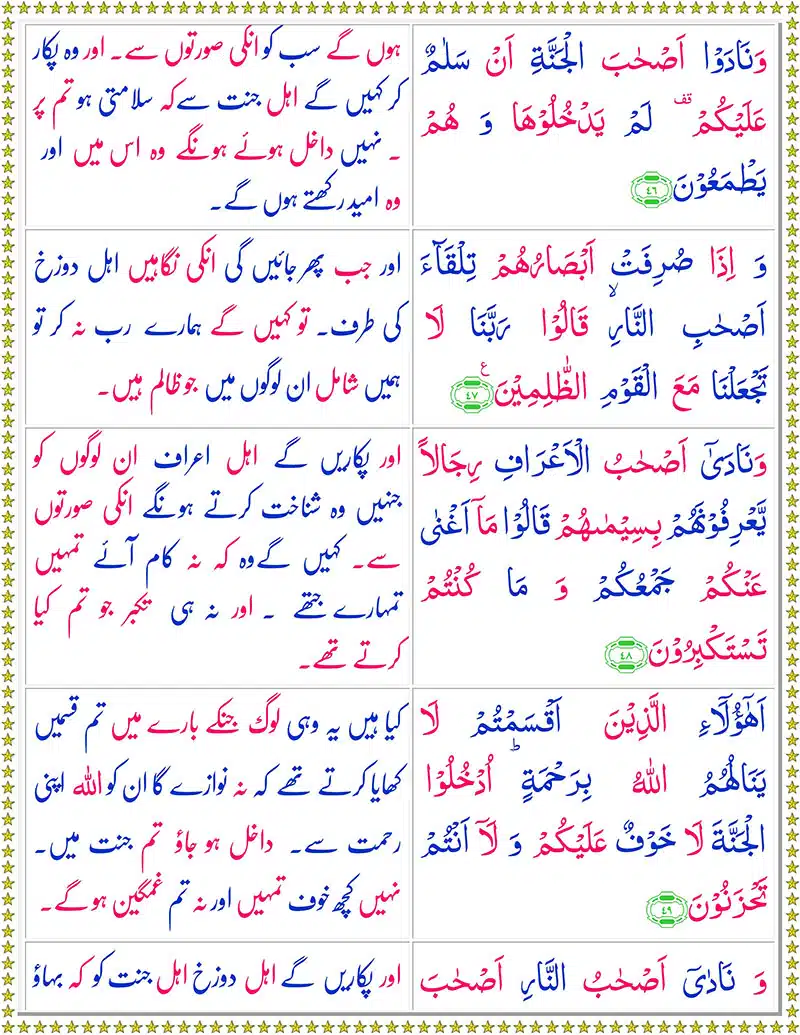 وَنَادَوْا اَصْحٰبَ الْجَنَّةِ اَنْ سَلٰمٌ
عَلَيْكُمْ ۫ لَمْ يَدْخُلُوْهَا وَ هُمْ
يَطْمَعُوْنَ ٤٦
ہوں گے سب کو انکی صورتوں سے۔ اور وہ پکار
کر کہیں گے اہل جنت سے کہ سلامتی ہو تم پر
۔ نہیں داخل ہوئے ہونگے وہ اس میں اور
وہ امید رکھتے ہوں گے۔
وَ اِذَا صُرِفَتْ اَبْصَارُهُمْ تِلْقَآءَ
اَصْحٰبِ النَّارِ ۙ قَالُوْا رَبَّنَا لَا
تَجْعَلْنَا مَعَ الْقَوْمِ الظّٰلِمِيْنَ ع ٤٧
اور جب پھر جائیں گی انکی نگاہیں اہل دوزخ
کی طرف۔ تو کہیں گے ہمارے رب نہ کر تو
ہمیں شامل ان لوگوں میں جو ظالم ہیں۔
وَنَادٰۤى اَصْحٰبُ الْاَعْرَافِ رِجَالًا
يَّعْرِفُوْنَهُمْ بِسِيْمٰىهُمْ قَالُوْا مَاۤ اَغْنٰى
عَنْكُمْ جَمْعُكُمْ وَ مَا كُنْتُمْ
تَسْتَكْبِرُوْنَ ٤٨
اور پکاریں گے اہل اعراف ان لوگوں کو
جنہیں وہ شناخت کرتے ہونگے انکی صورتوں
سے۔ کہیں گے وہ کہ نہ کام آئے تمہیں
تمہارے جتھے ۔ اور نہ ہی تکبر جو تم کیا
کرتے تھے۔
اَهٰۤؤُلَآءِ الَّذِيْنَ اَقْسَمْتُمْ لَا
يَنَالُهُمُ اللّٰهُ بِرَحْمَةٍ ؕ اُدْخُلُوْا
الْجَنَّةَ لَا خَوْفٌ عَلَيْكُمْ وَ لَاۤ اَنْتُمْ
تَحْزَنُوْنَ ٤٩
کیا ہیں یہ وہی لوگ جنکے بارے میں تم قسمیں
کھایا کرتے تھے کہ نہ نوازے گا ان کو اللہ اپنی
رحمت سے۔ داخل ہو جاؤ تم جنت میں۔
نہیں کچھ خوف تمہیں اور نہ تم غمگین ہو گے۔
وَ نَادٰۤى اَصْحٰبُ النَّارِ اَصْحٰبَ
اور پکاریں گے اہل دوزخ اہل جنت کو کہ بہاؤ